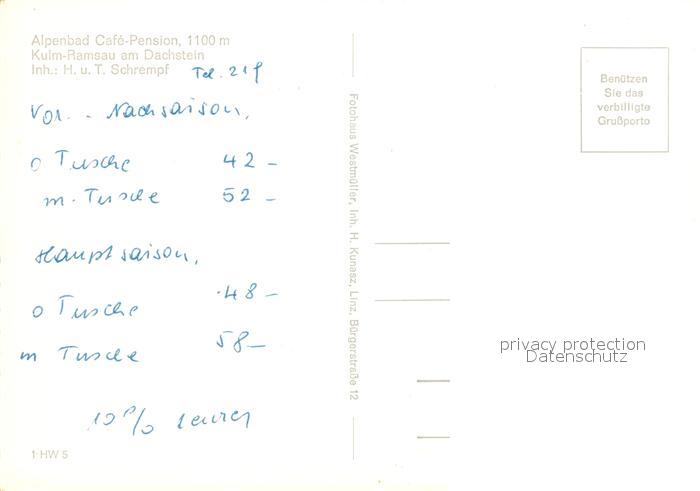 Alpenbad Café-Pension, 1100 m
Kulm-Ramsau am Dachstein
Inh.: H. u. T. Schrempf
Tel. 219
Vor. - Nachsaison,
o Tusche 42 -
m. Tusche 52 -
Hauptsaison,
o Tusche 48 -
m Tusche 58 -
10 %
1 HW 5
Fotohaus Westmüller, Inh. H. Kunasz, Linz, Bürgerstraße 12
Benützen
Sie das
verbilligte
Grußporto
privacy protection
Datenschutz